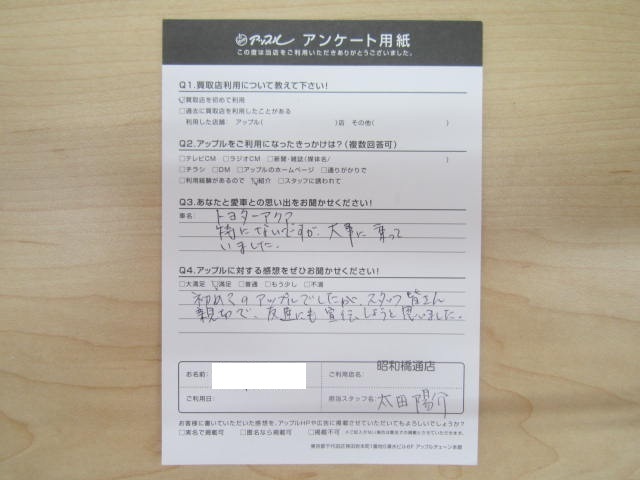 アップル アンケート用紙
この度は当店をご利用いただきありがとうございました。
Q1.買取店利用について教えて下さい!
買取店を初めて利用
□過去に買取店を利用したことがある
利用した店舗: アップル( )店 その他( )
Q2.アップルをご利用になったきっかけは?(複数回答可)
□テレビCM □ラジオCM □新聞・雑誌(媒体名/ )
□チラシ □DM □アップルのホームページ □通りがかりで
□利用経験があるので 紹介 □スタッフに誘われて
Q3.あなたと愛車との思い出をお聞かせください!
車名: トヨターアクア
特にないですが、大事に乗って
いました。
Q4.アップルに対する感想をぜひお聞かせください!
□大満足 満足 □普通 □もう少し □不満
初めてのアップルでしたが、スタッフ皆さん
親切で、友達にも宣伝しようと思いました。
お名前: ご利用店名: 昭和橋通店
ご利用日: 担当スタッフ名: 太田 陽介
お客様に書いていただいた感想を、アップルHPや広告に掲載させていただいてもよろしいでしょうか?
□実名で掲載可 □匿名なら掲載可 □掲載不可